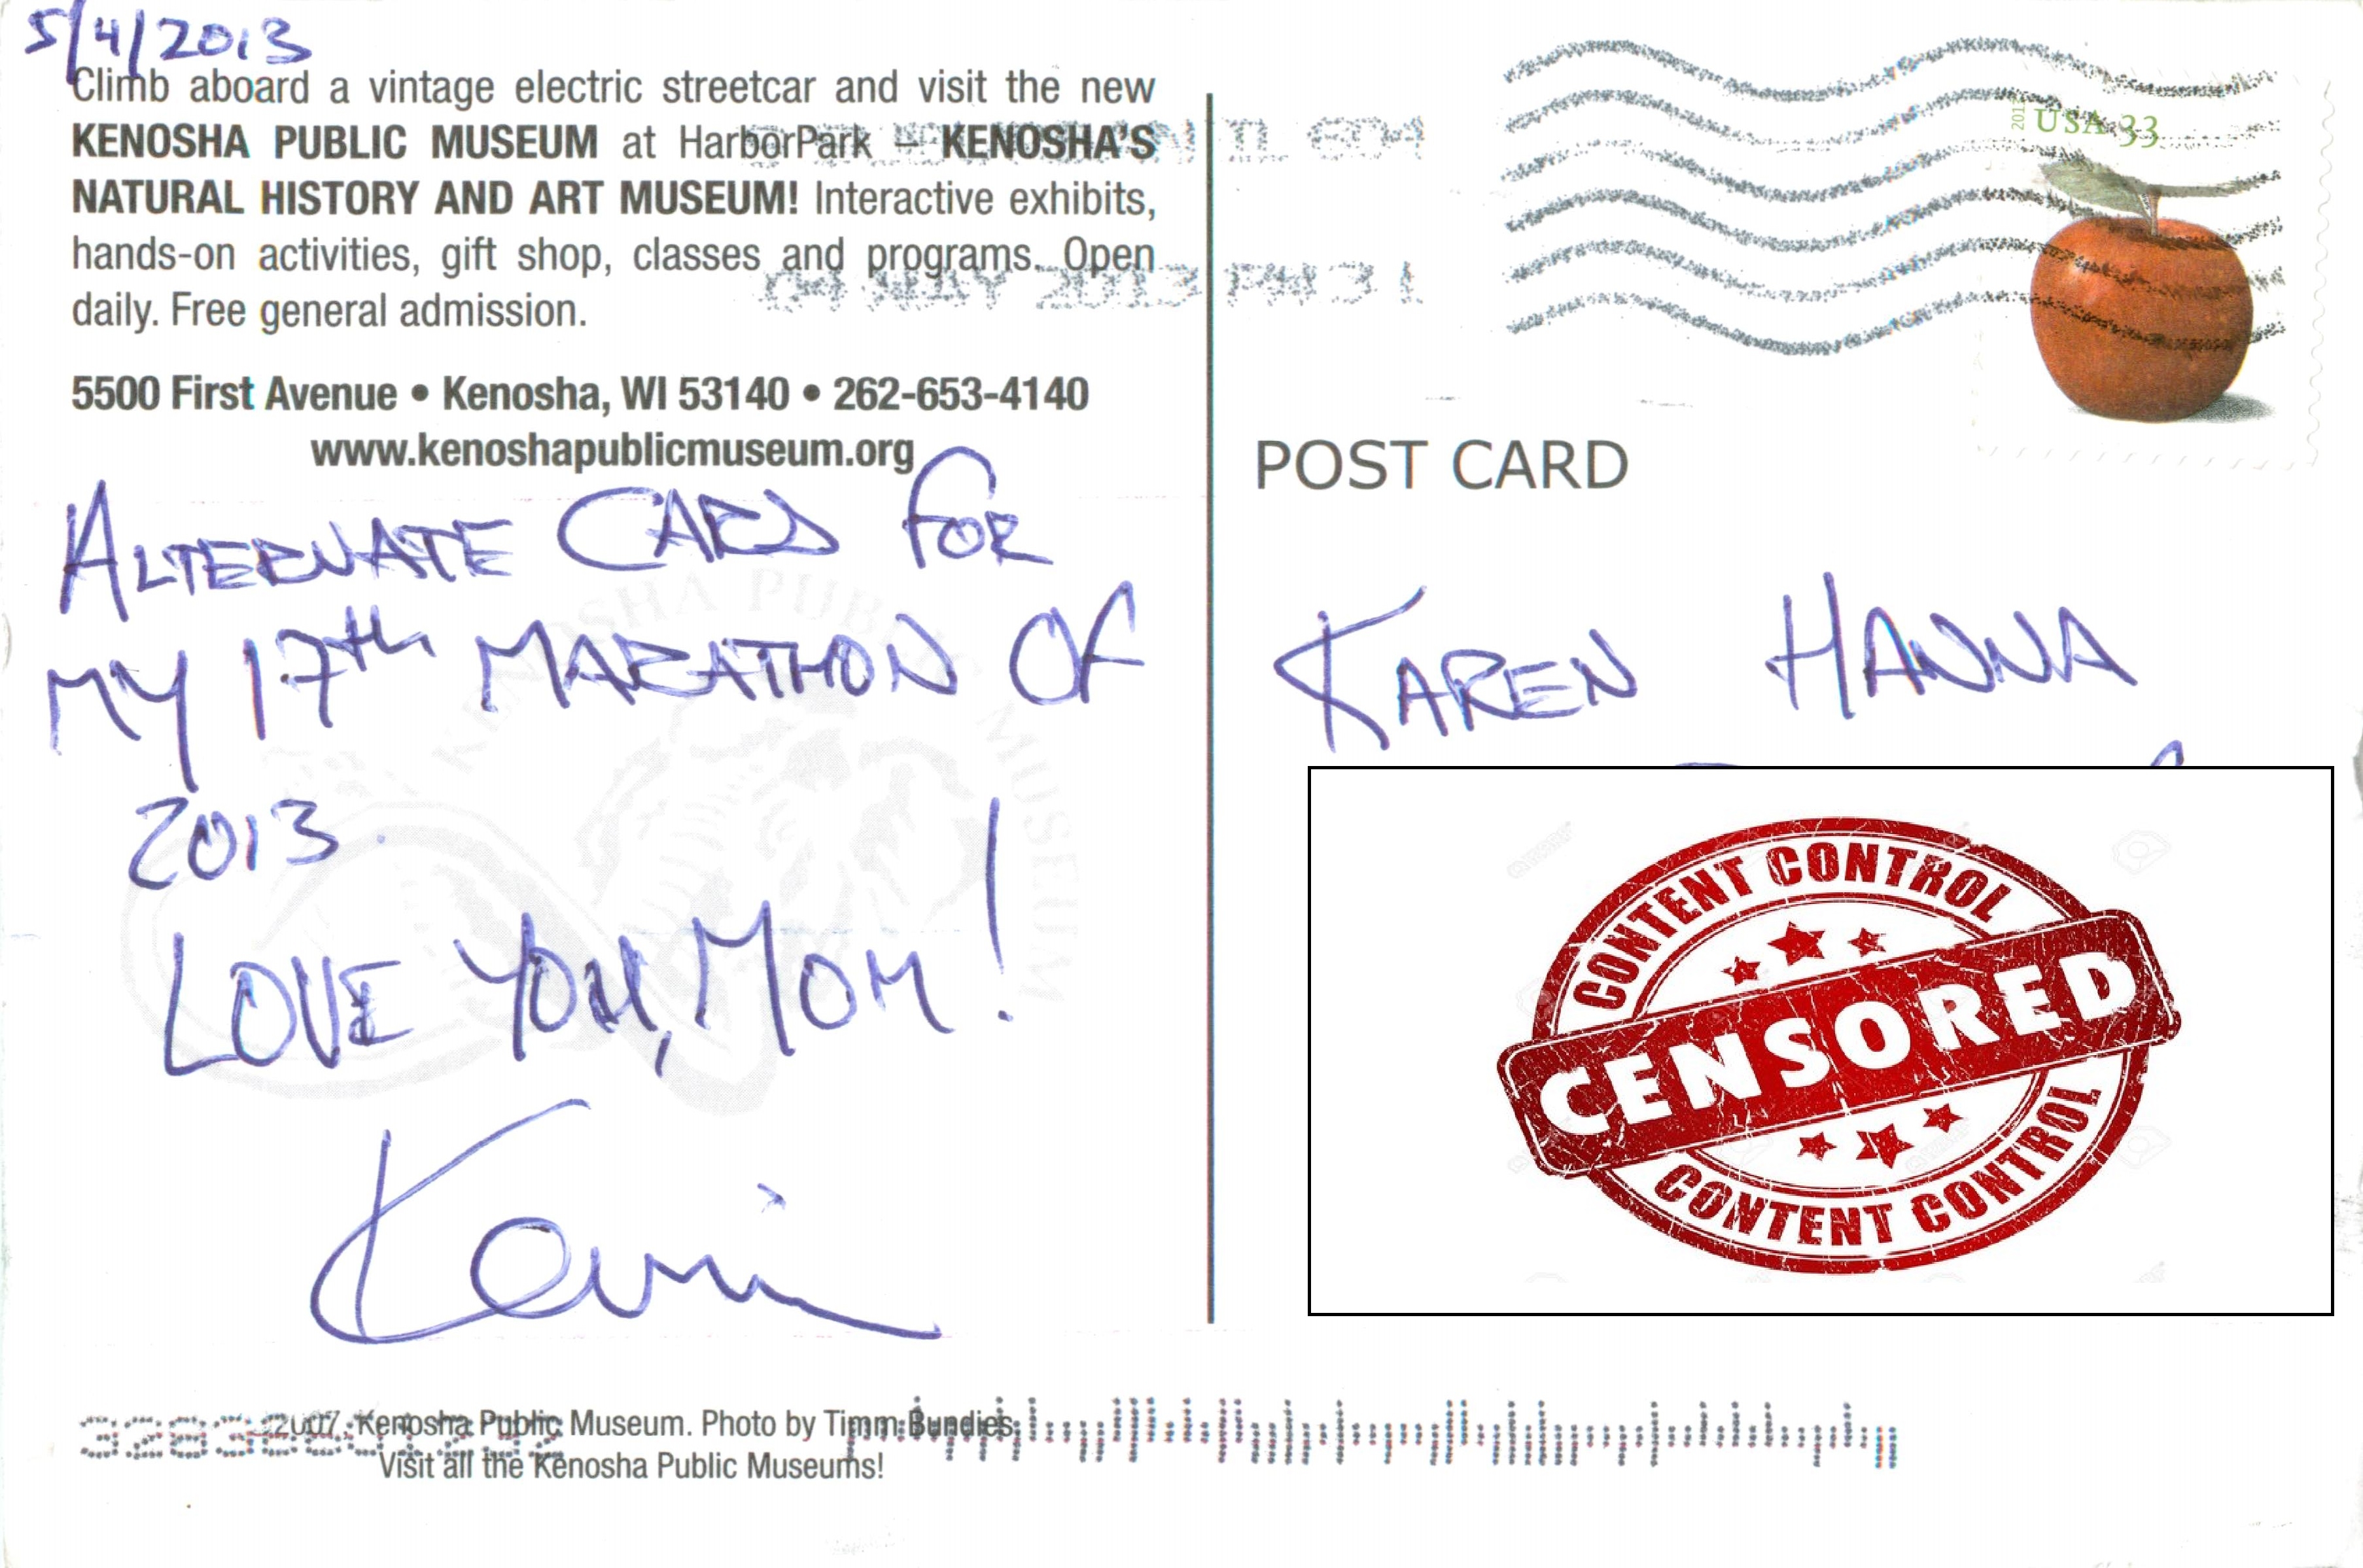 5/4/2013
Climb aboard a vintage electric streetcar and visit the new
KENOSHA PUBLIC MUSEUM at HarborPark – KENOSHA'S
NATURAL HISTORY AND ART MUSEUM! Interactive exhibits,
hands-on activities, gift shop, classes and programs. Open
daily. Free general admission.
5500 First Avenue • Kenosha, WI 53140 • 262-653-4140
www.kenoshapublicmuseum.org
ALTERNATE CARD FOR
MY 17th MARATHON OF
2013.
LOVE YOU, MOM!
Kevin
2007, Kenosha Public Museum. Photo by Timm Bundies.
Visit all the Kenosha Public Museums!
KENOSHA PUBLIC MUSEUM
IL 604
04 MAY 2013 PM 3 L
USA 33
POST CARD
KAREN HANNA
CONTENT CONTROL
CENSORED
CONTENT CONTROL